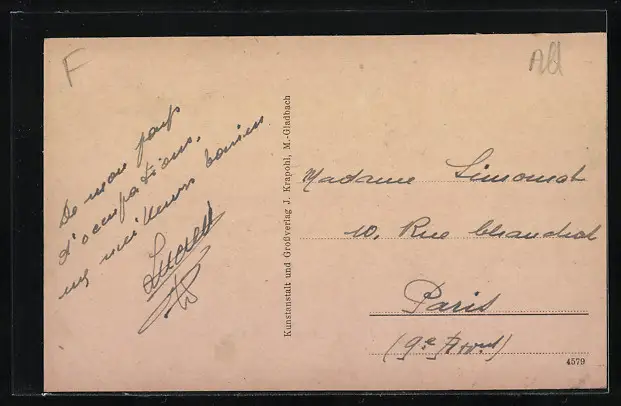 F
All
De mon pays
d'occupations,
mes meilleurs baisers
Kunstanstalt und Großverlag J. Krapohl, M.-Gladbach
Madame Simonat
10, Rue Chandial
Paris
(9e Arrdt)
4579